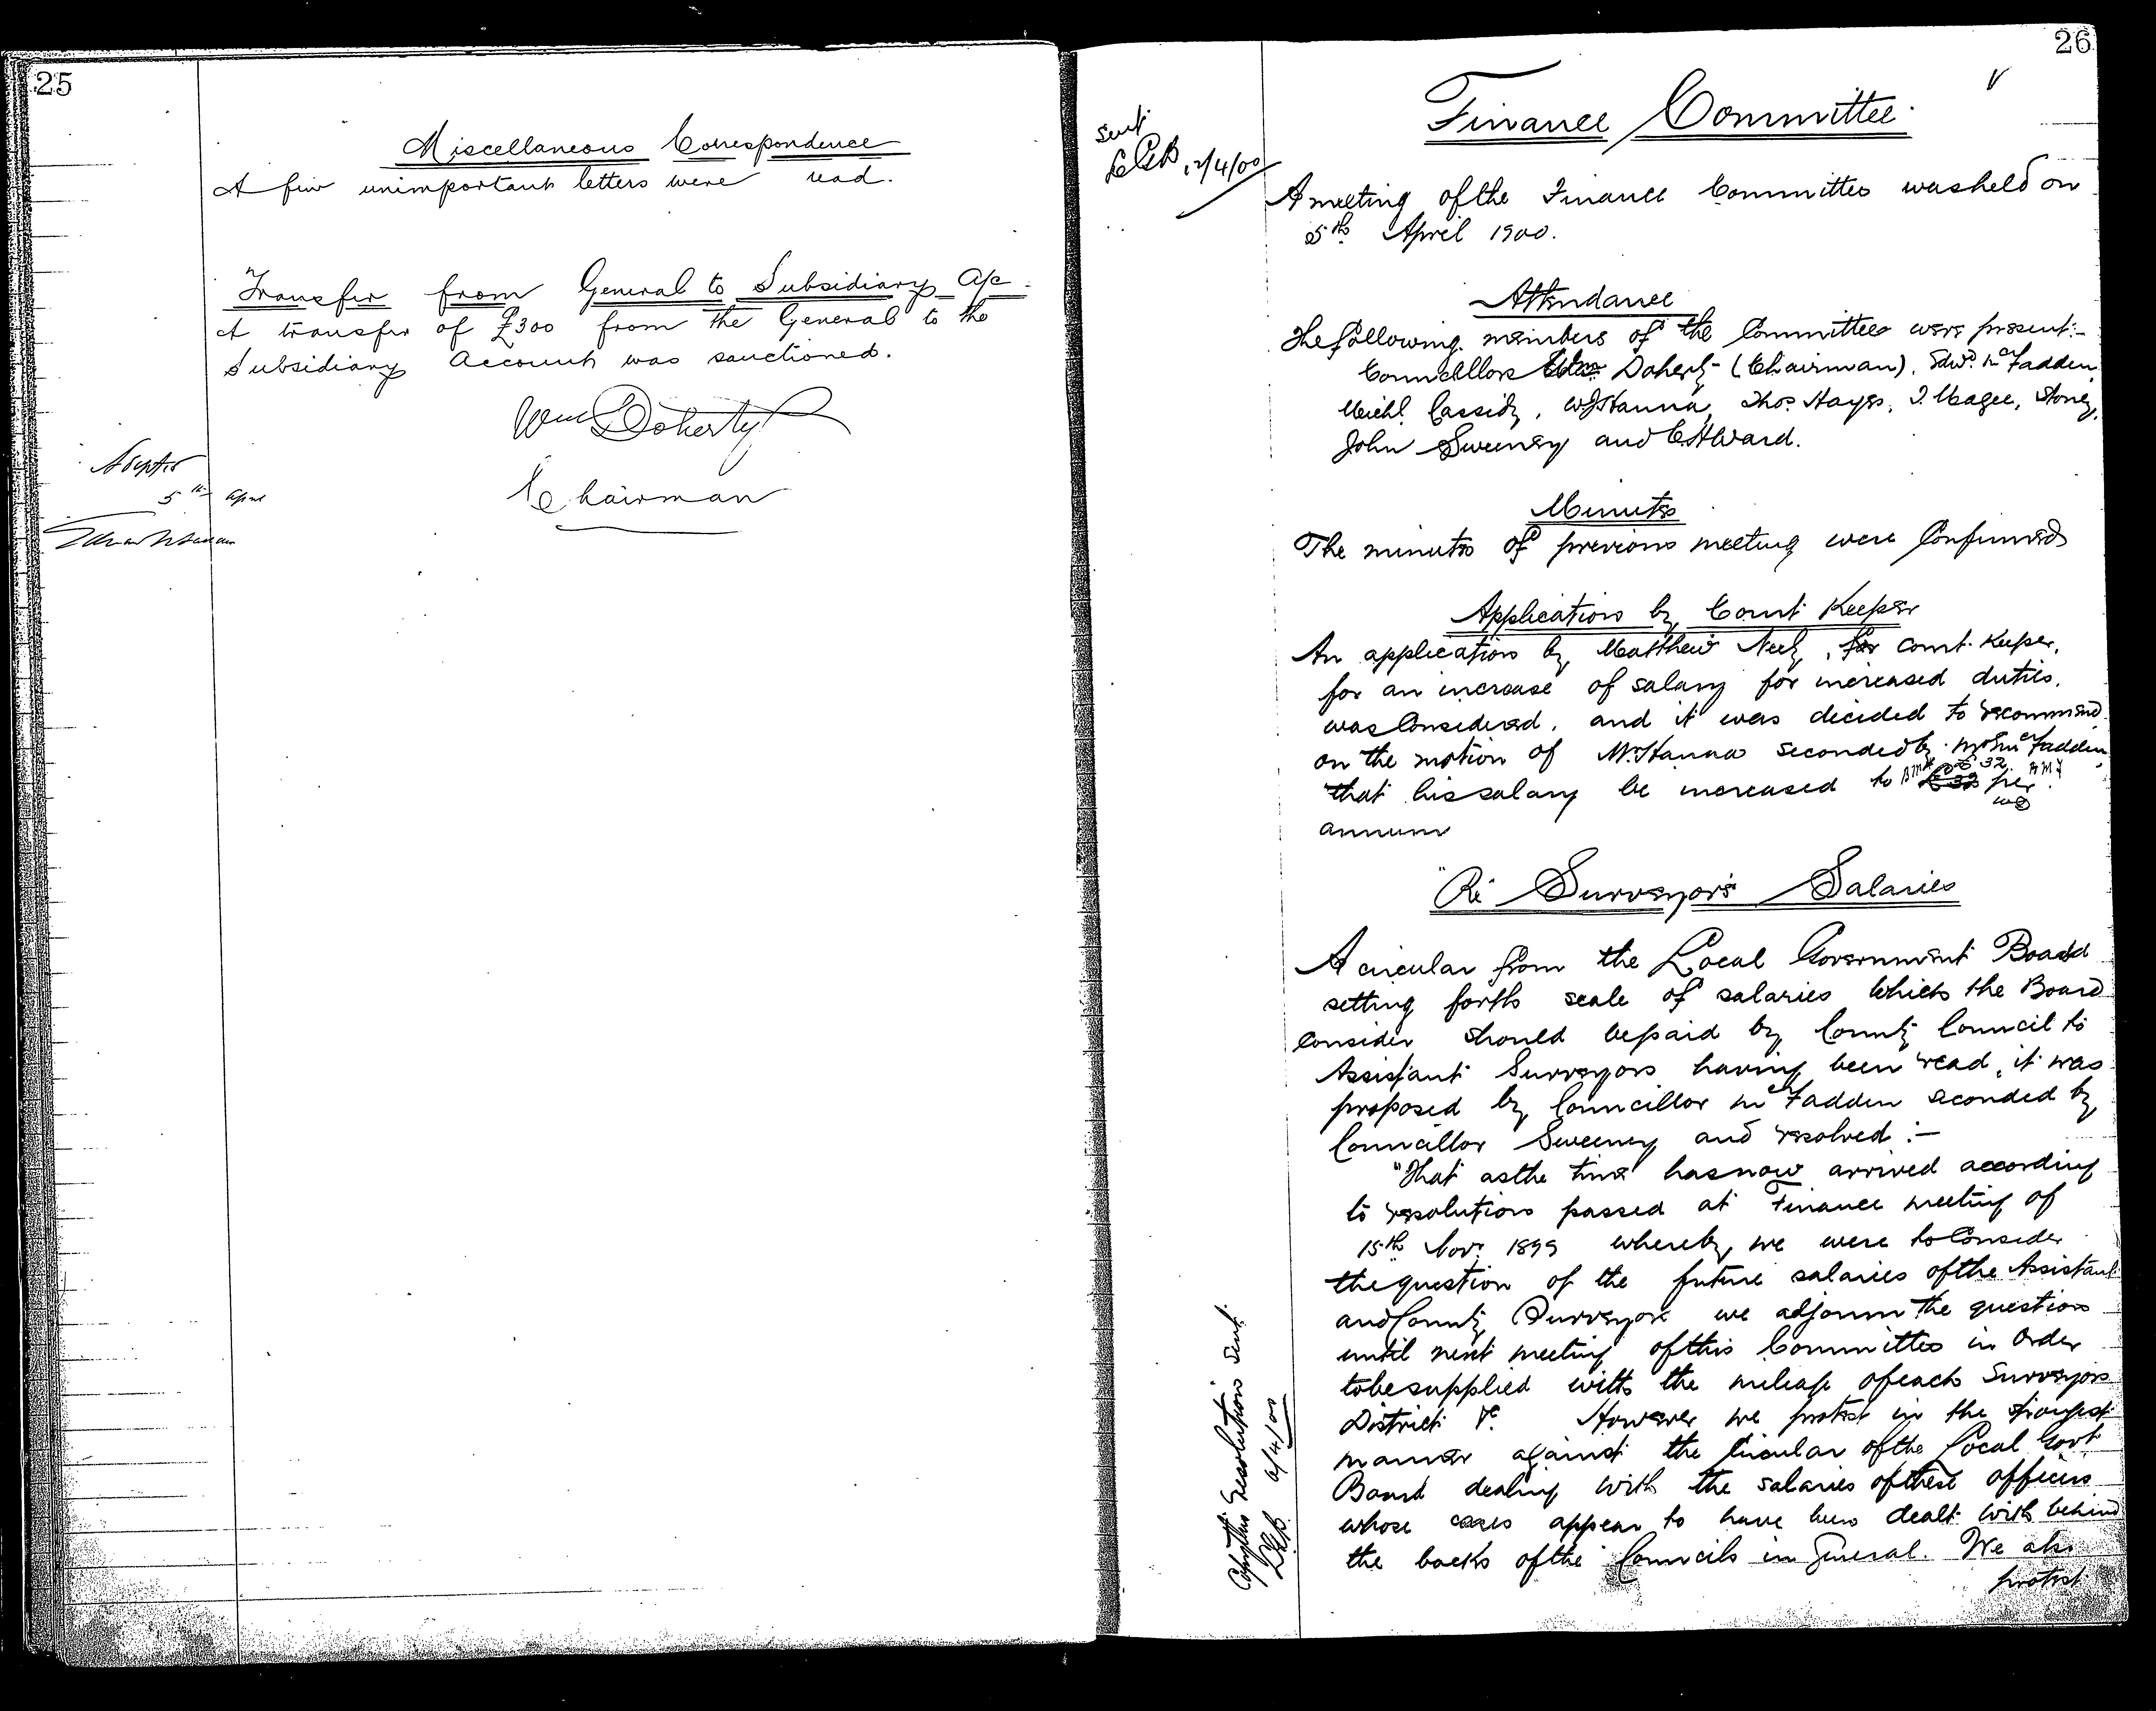 25
Miscellaneous Correspondence
A few unimportant letters were read.
Transfer from General to Subsidiary A/c.
A transfer of £300 from the General to the
Subsidiary Account was sanctioned.
Wm Doherty
Chairman
5th April
26
Finance Committee.
Sent
LGB 12/4/00
A meeting of the Finance Committee was held on
5th April 1900.
Attendance
The following members of the Committee were present:-
Councillors Doherty (Chairman), Edwd. McFadden,
Michl. Cassidy, W J Hanna, Thos. Hayes, J. Magee, Storey,
John Sweeney and C H Ward.
Minutes
The minutes of previous meeting were Confirmed
Application by Court Keeper
An application by Matthew Neely, for Court Keeper,
for an increase of salary for increased duties,
was Considered, and it was decided to recommend
on the motion of Mr. Hanna seconded by Mr. McFadden,
that his salary be increased to £32 £32 per
annum
"Re" Surveyor's Salaries
A circular from the Local Government Board
setting forth scale of salaries which the Board
Consider should be paid by County Council to
Assistant Surveyors having been read, it was
proposed by Councillor McFadden seconded by
Councillor Sweeney and resolved :-
"That as the time has now arrived according
to resolution passed at Finance meeting of
15th Novr. 1899 whereby we were to Consider
the question of the future salaries of the Assistant
and County Surveyors we adjourn the question
until next meeting of this Committee in Order
to be supplied with the mileage of each Surveyors
District &c. However we protest in the strongest
manner against the Circular of the Local Govt
Board dealing with the salaries of these officers
whose cases appear to have been dealt with behind
the backs of the Councils in General. We also
protest
Copy this resolution sent
LGB 6/4/00